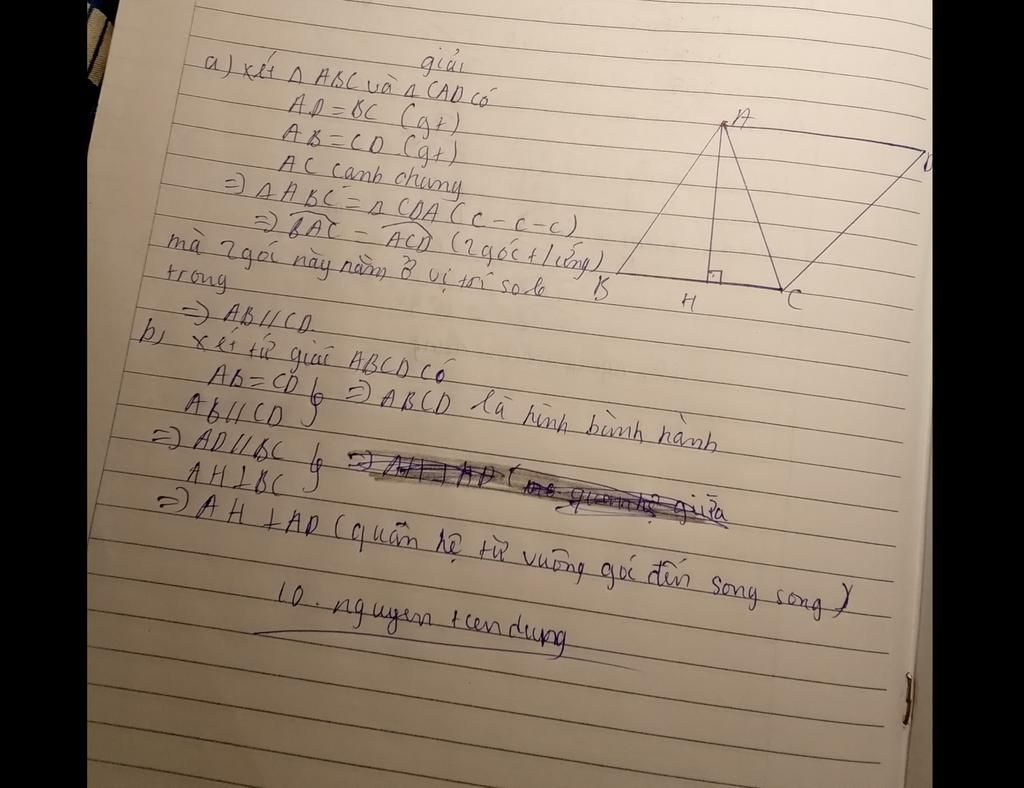 giải
a) xét Δ ABC và Δ CAD có
AD = BC (gt)
AB = CD (gt)
AC cạnh chung
=> Δ ABC = Δ CDA (c-c-c)
=> BAC = ACD (2 góc t/ứng)
mà 2 góc này nằm ở vị trí so le
trong
=> AB // CD.
b, xét tứ giác ABCD có
AB = CD } => ABCD là hình bình hành
AB // CD
=> AD // BC }
AH ⊥ BC
=> AH ⊥ AD (quan hệ từ vuông góc đến song song)
A
D
B
H
C